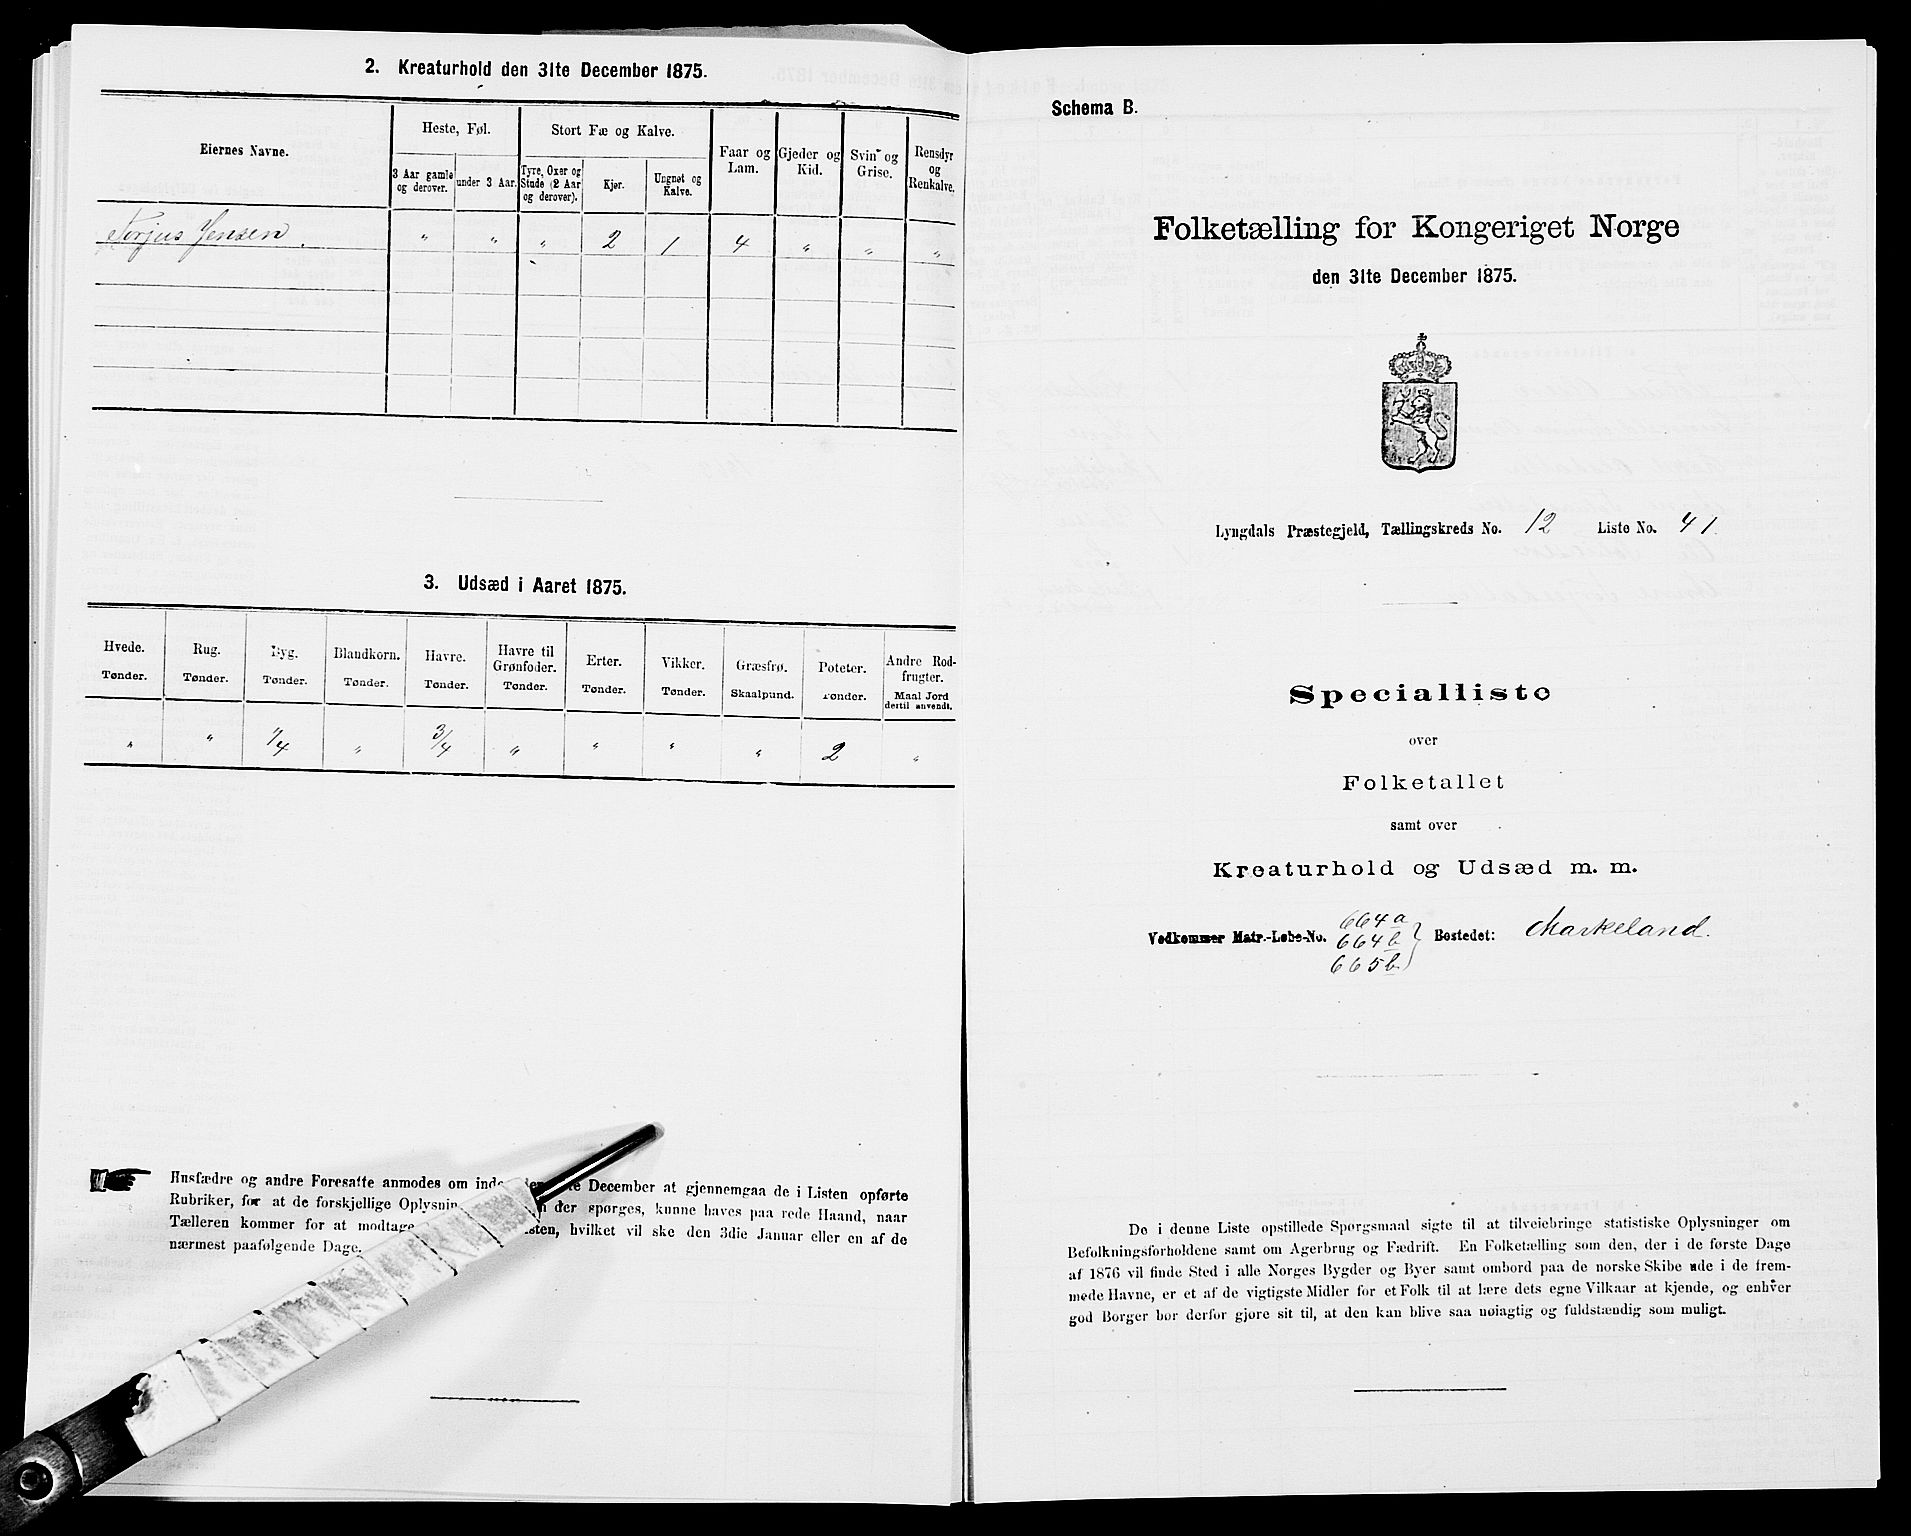 2. Kreaturhold den 31te December 1875.
Eiernes Navne.
Heste, Føl.
Stort Fæ og Kalve.
Faar og Lam.
Gjeder og Kid.
Svin og Grise.
Rensdyr og Renkalve.
3 Aar gamle og derover.
under 3 Aar.
Tyre, Oxer og Stude (2 Aar og derover).
Kjør.
Ungnøt og Kalve.
Torjus Jensen. " " " 2 1 4 " " "
3. Udsæd i Aaret 1875.
Hvede. Rug. Byg. Blandkorn. Havre. Havre til Grønfoder. Erter. Vikker. Græsfrø. Poteter. Andre Rodfrugter.
Tønder. Tønder. Tønder. Tønder. Tønder. Tønder. Tønder. Tønder. Skaalpund. Tønder. Maal Jord dertil anvendt.
" " 1/4 " 3/4 " " " " 2 "
Husfædre og andre Foresatte anmodes om inden den December at gjennemgaa de i Listen opførte
Rubriker, for at de forskjellige Oplysnin der spørges, kunne haves paa rede Haand, naar
Tælleren kommer for at modtage Listen, hvilket vil ske den 3die Januar eller en af de
nærmest paafølgende Dage.
Schema B.
Folketælling for Kongeriget Norge
den 31te December 1875.
Lyngdals Præstegjeld, Tællingskreds No. 12 Liste No. 41.
Specialliste
over
Folketallet
samt over
Kreaturhold og Udsæd m. m.
664a
Vedkommer Matr.-Løbe-No. 664b } Bostedet: Markeland.
665b
De i denne Liste opstillede Spørgsmaal sigte til at tilveiebringe statistiske Oplysninger om
Befolkningsforholdene samt om Agerbrug og Fædrift. En Folketælling som den, der i de første Dage
af 1876 vil finde Sted i alle Norges Bygder og Byer samt ombord paa de norske Skibe ude i de frem-
mede Havne, er et af de vigtigste Midler for et Folk til at lære dets egne Vilkaar at kjende, og enhver
god Borger bør derfor gjøre sit til, at den kan blive saa nøiagtig og fuldstændig som muligt.